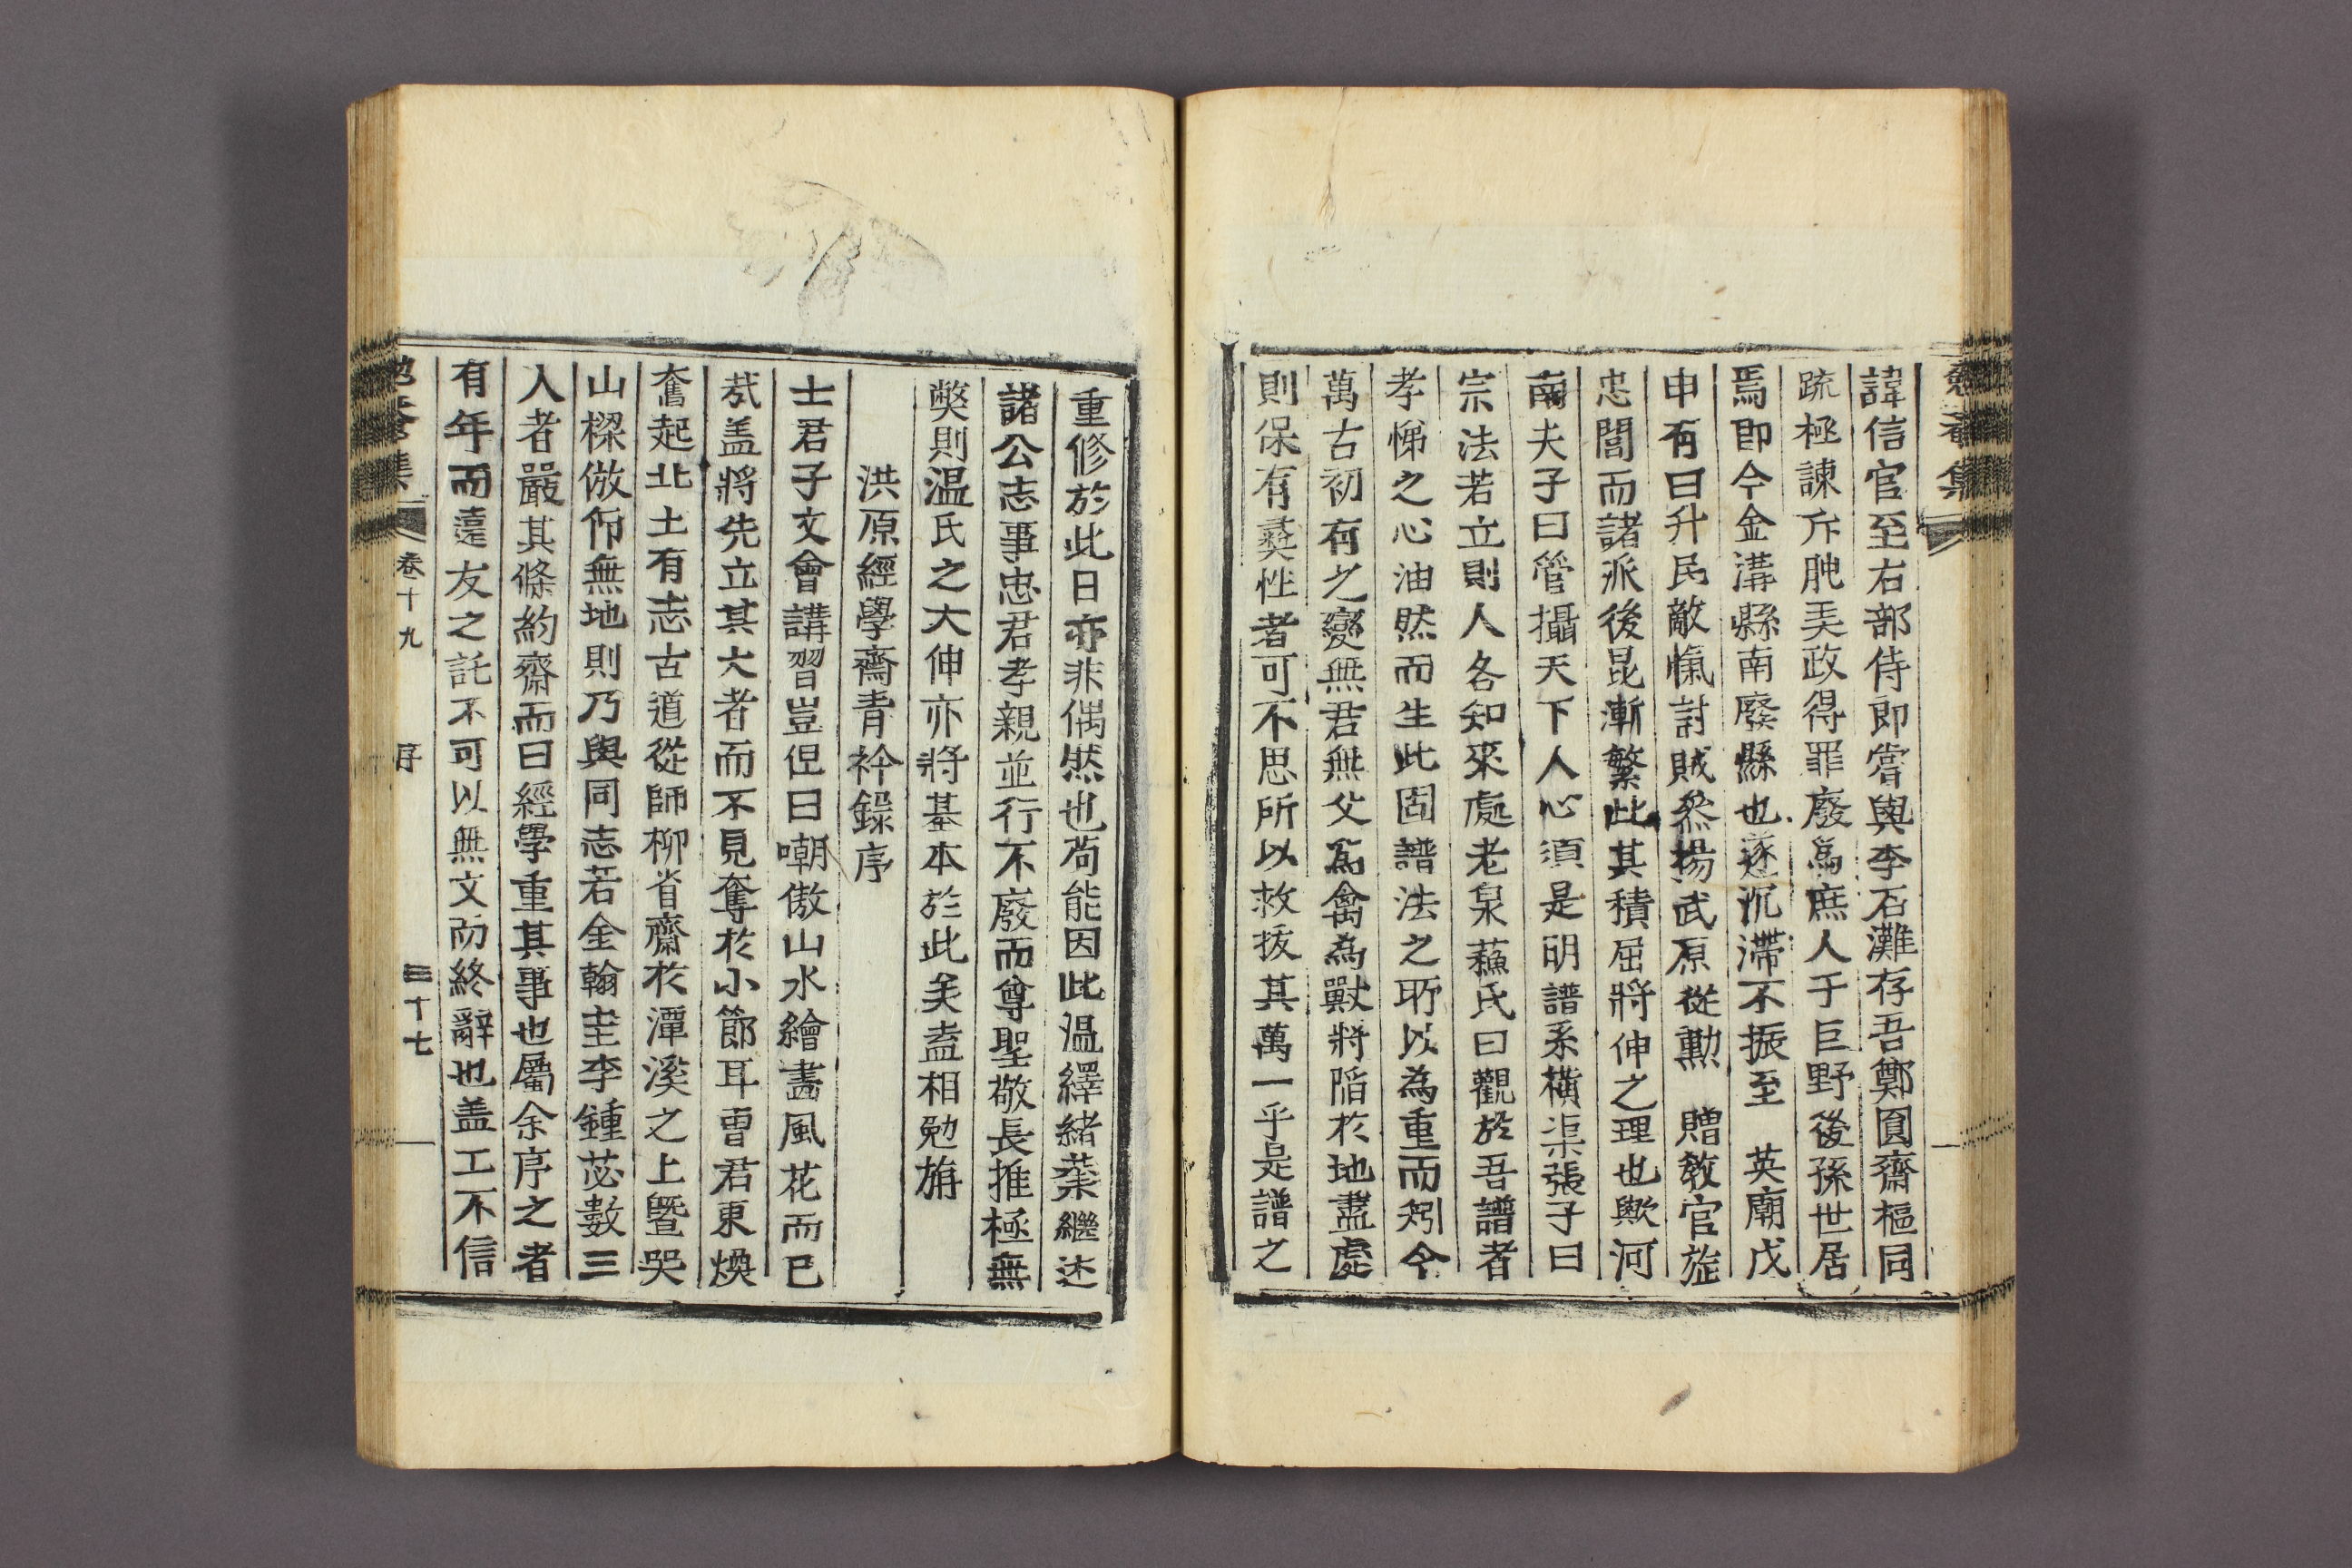 諱信官至右部侍郎嘗與李石灘存吾鄭圓齋樞同
疏極諫斥肫美政得罪廢爲庶人于巨野後孫世居
焉即今金溝縣南廢縣也遂沉滯不振至 英廟戊
申有曰升民敵愾討賊叅揚武原從勳 贈敎官旌
忠閭而諸派後昆漸繁此其積屈將伸之理也歟河
南夫子曰管攝天下人心須是明譜系橫渠張子曰
宗法若立則人各知來處老泉蘇氏曰觀於吾譜者
孝悌之心油然而生此固譜法之所以為重而矧今
萬古初有之變無君無父爲禽為獸將陷於地盡處
則保有彛性者可不思所以救拔其萬一乎是譜之
重修於此日亦非偶然也苟能因此温繹緖葉繼述
諸公志事忠君孝親並行不廢而尊聖敬長推極無
獘則温氏之大伸亦將基本於此矣盍相勉旃
洪原經學齋青衿錄序
士君子文會講習豈但曰嘲傲山水繪畫風花而已
㢤盖將先立其大者而不見奪於小節耳曺君東煥
奮起北土有志古道從師柳省齋於潭溪之上曁哭
山樑倣仰無地則乃與同志若金翰圭李鍾苾數三
入者嚴其條約齋而曰經學重其事也屬余序之者
有年而遠友之託不可以無文而終辭也盖工不信
卷十九
序
三十七